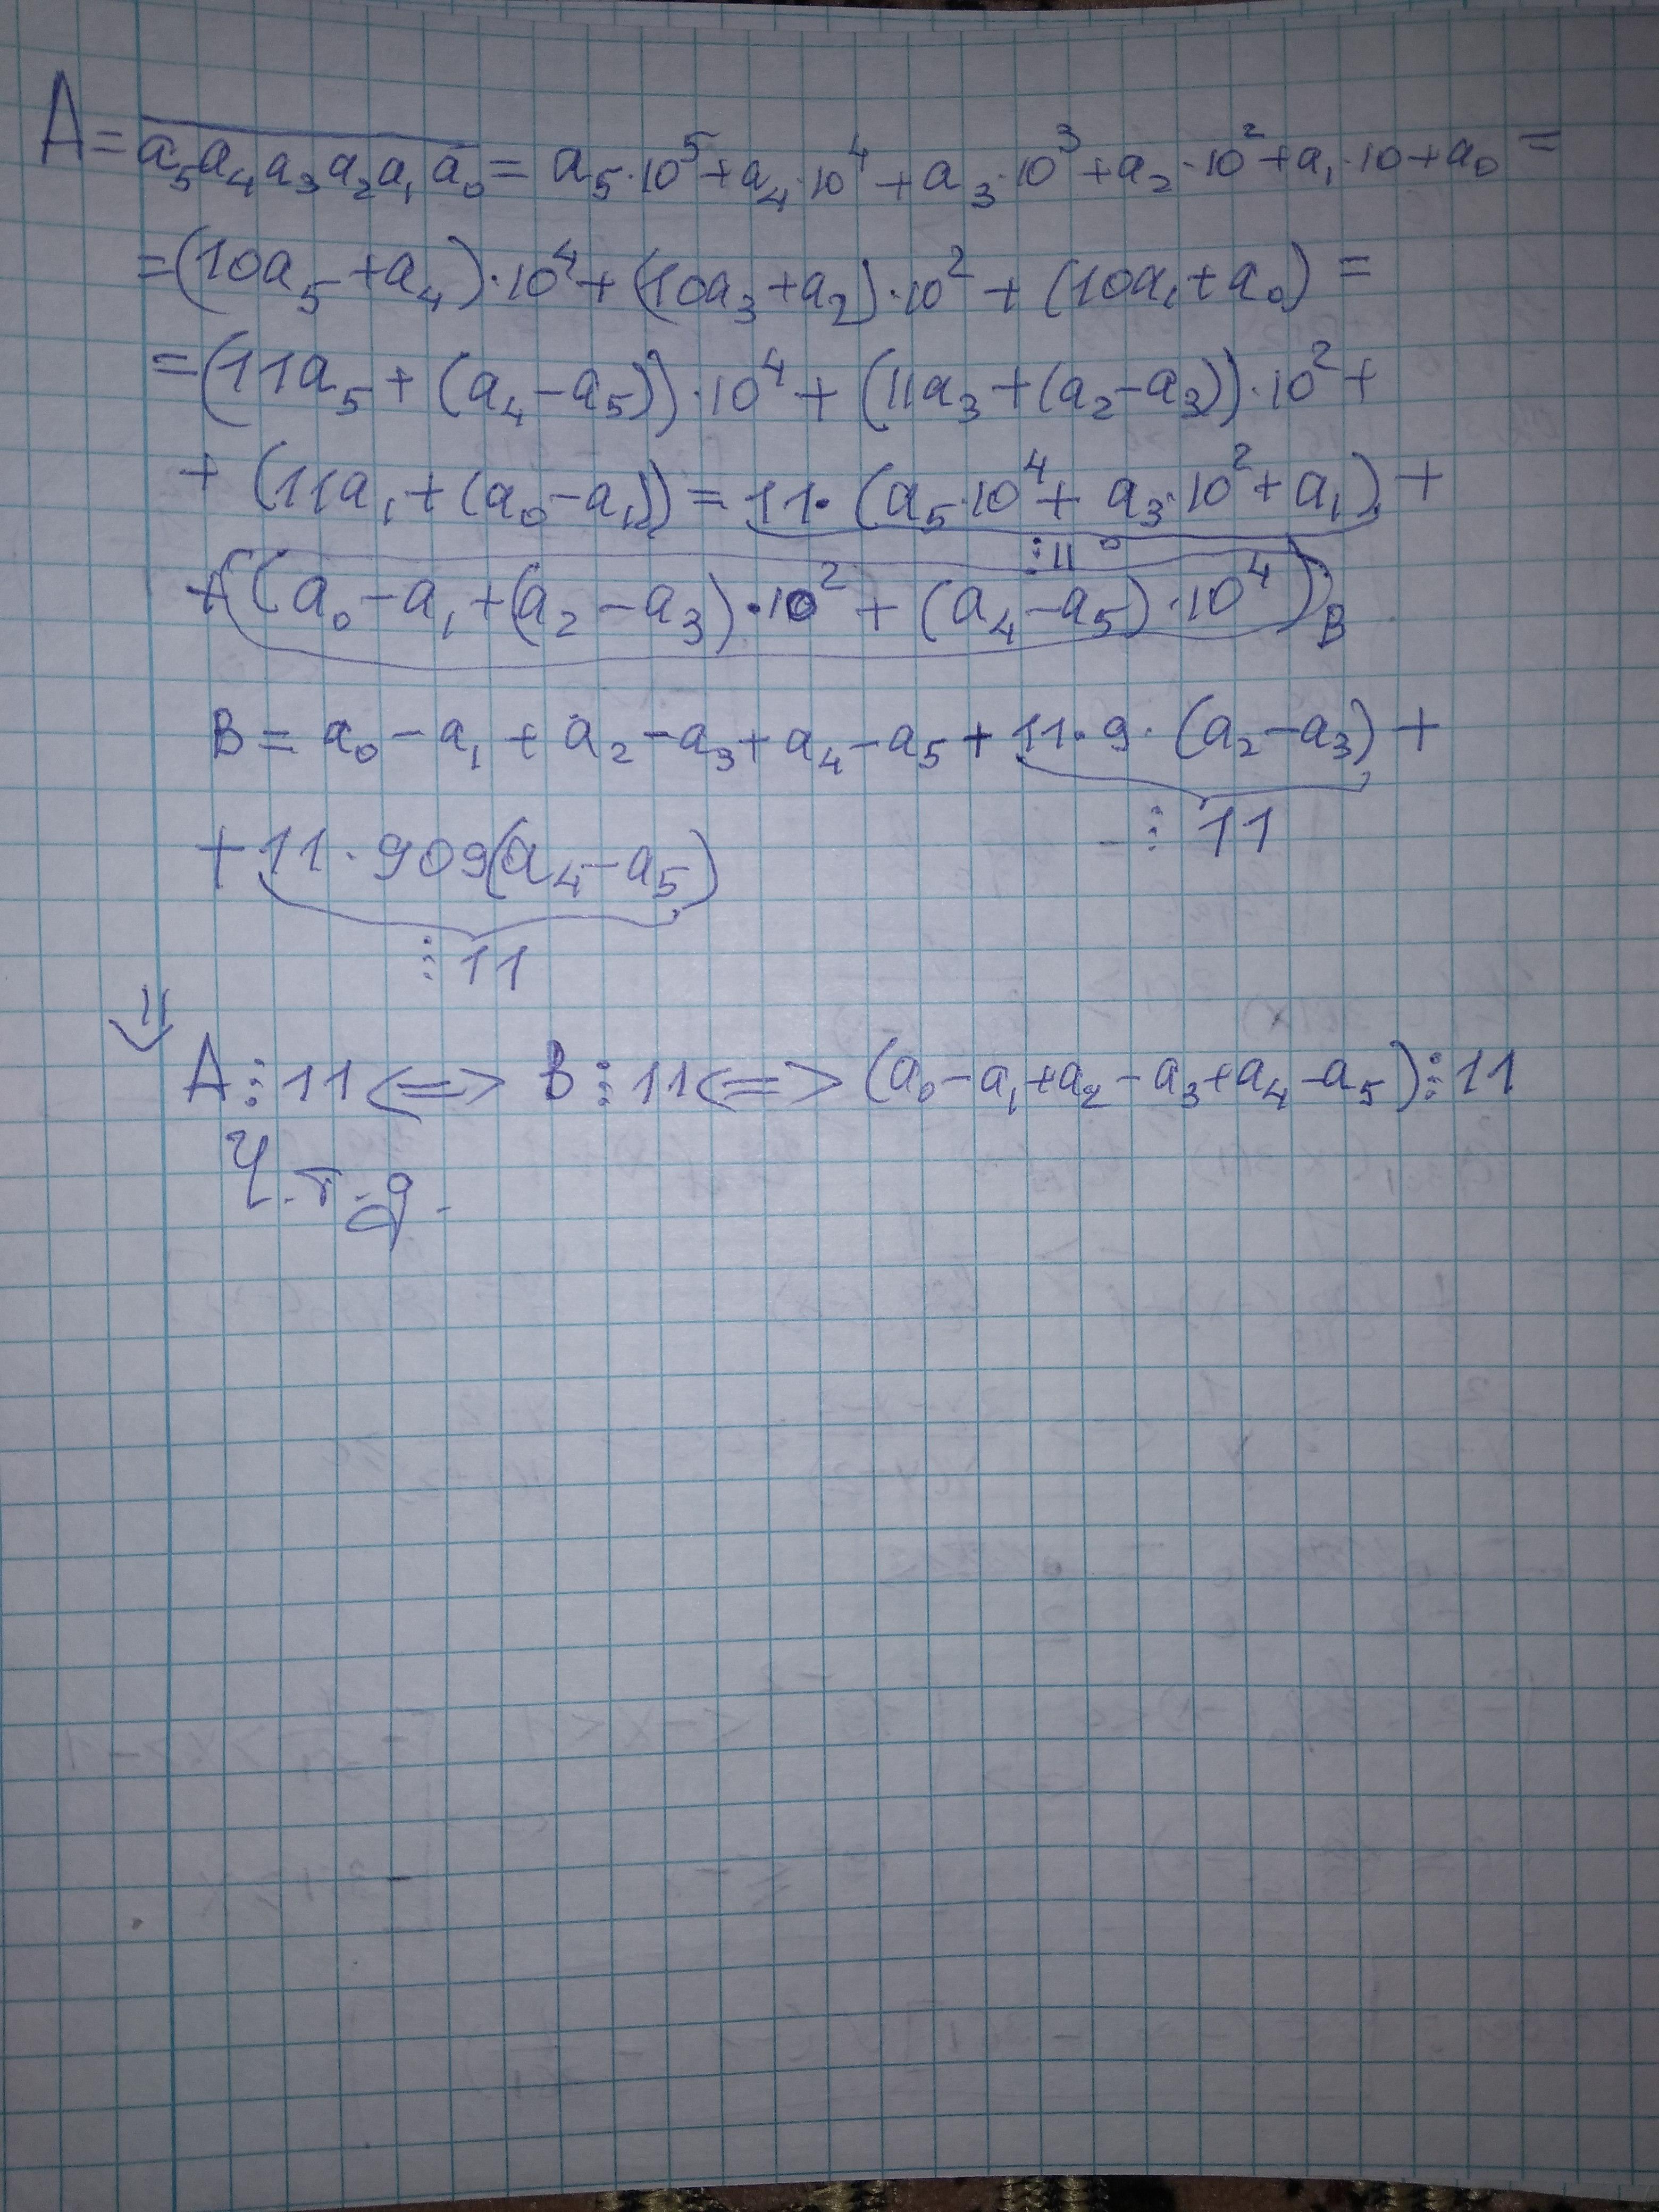 A = a₅a₄a₃a₂a₁a₀ = a₅·10⁵+a₄·10⁴+a₃·10³+a₂·10²+a₁·10+a₀ =
=(10a₅+a₄)·10⁴+(10a₃+a₂)·10²+(10a₁+a₀)=
=(11a₅+(a₄-a₅))·10⁴+(11a₃+(a₂-a₃))·10²+
+(11a₁+(a₀-a₁))=11·(a₅·10⁴+a₃·10²+a₁)+
⋮11
+((a₀-a₁+(a₂-a₃)·10²+(a₄-a₅)·10⁴) B
B=a₀-a₁+a₂-a₃+a₄-a₅+11·9·(a₂-a₃)+
⋮11
+11·909(a₄-a₅)
⋮11
⇓
A⋮11<=>B⋮11<=>(a₀-a₁+a₂-a₃+a₄-a₅)⋮11
Ч.т.д.